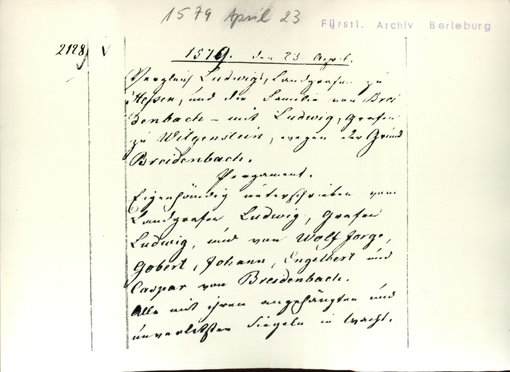 1579 April 23
Fürstl. Archiv Berleburg
2128 V
1579. den 23 April.
Vergleich Ludwigs, Landgrafen zu
Hessen, und die Familie von Brei
denbach - mit Ludwig, Grafen
zu Witgenstein, wegen der Grund
Breidenbach.
Pergament.
Eigenhändig unterschrieben vom
Landgrafen Ludwig, Grafen
Ludwig, und von Wolf Jorge,
Gobert, Johann, Engelbert und
Caspar von Breidenbach.
Alle mit ihren angehängten und
unverletzten Siegeln in Wachs.